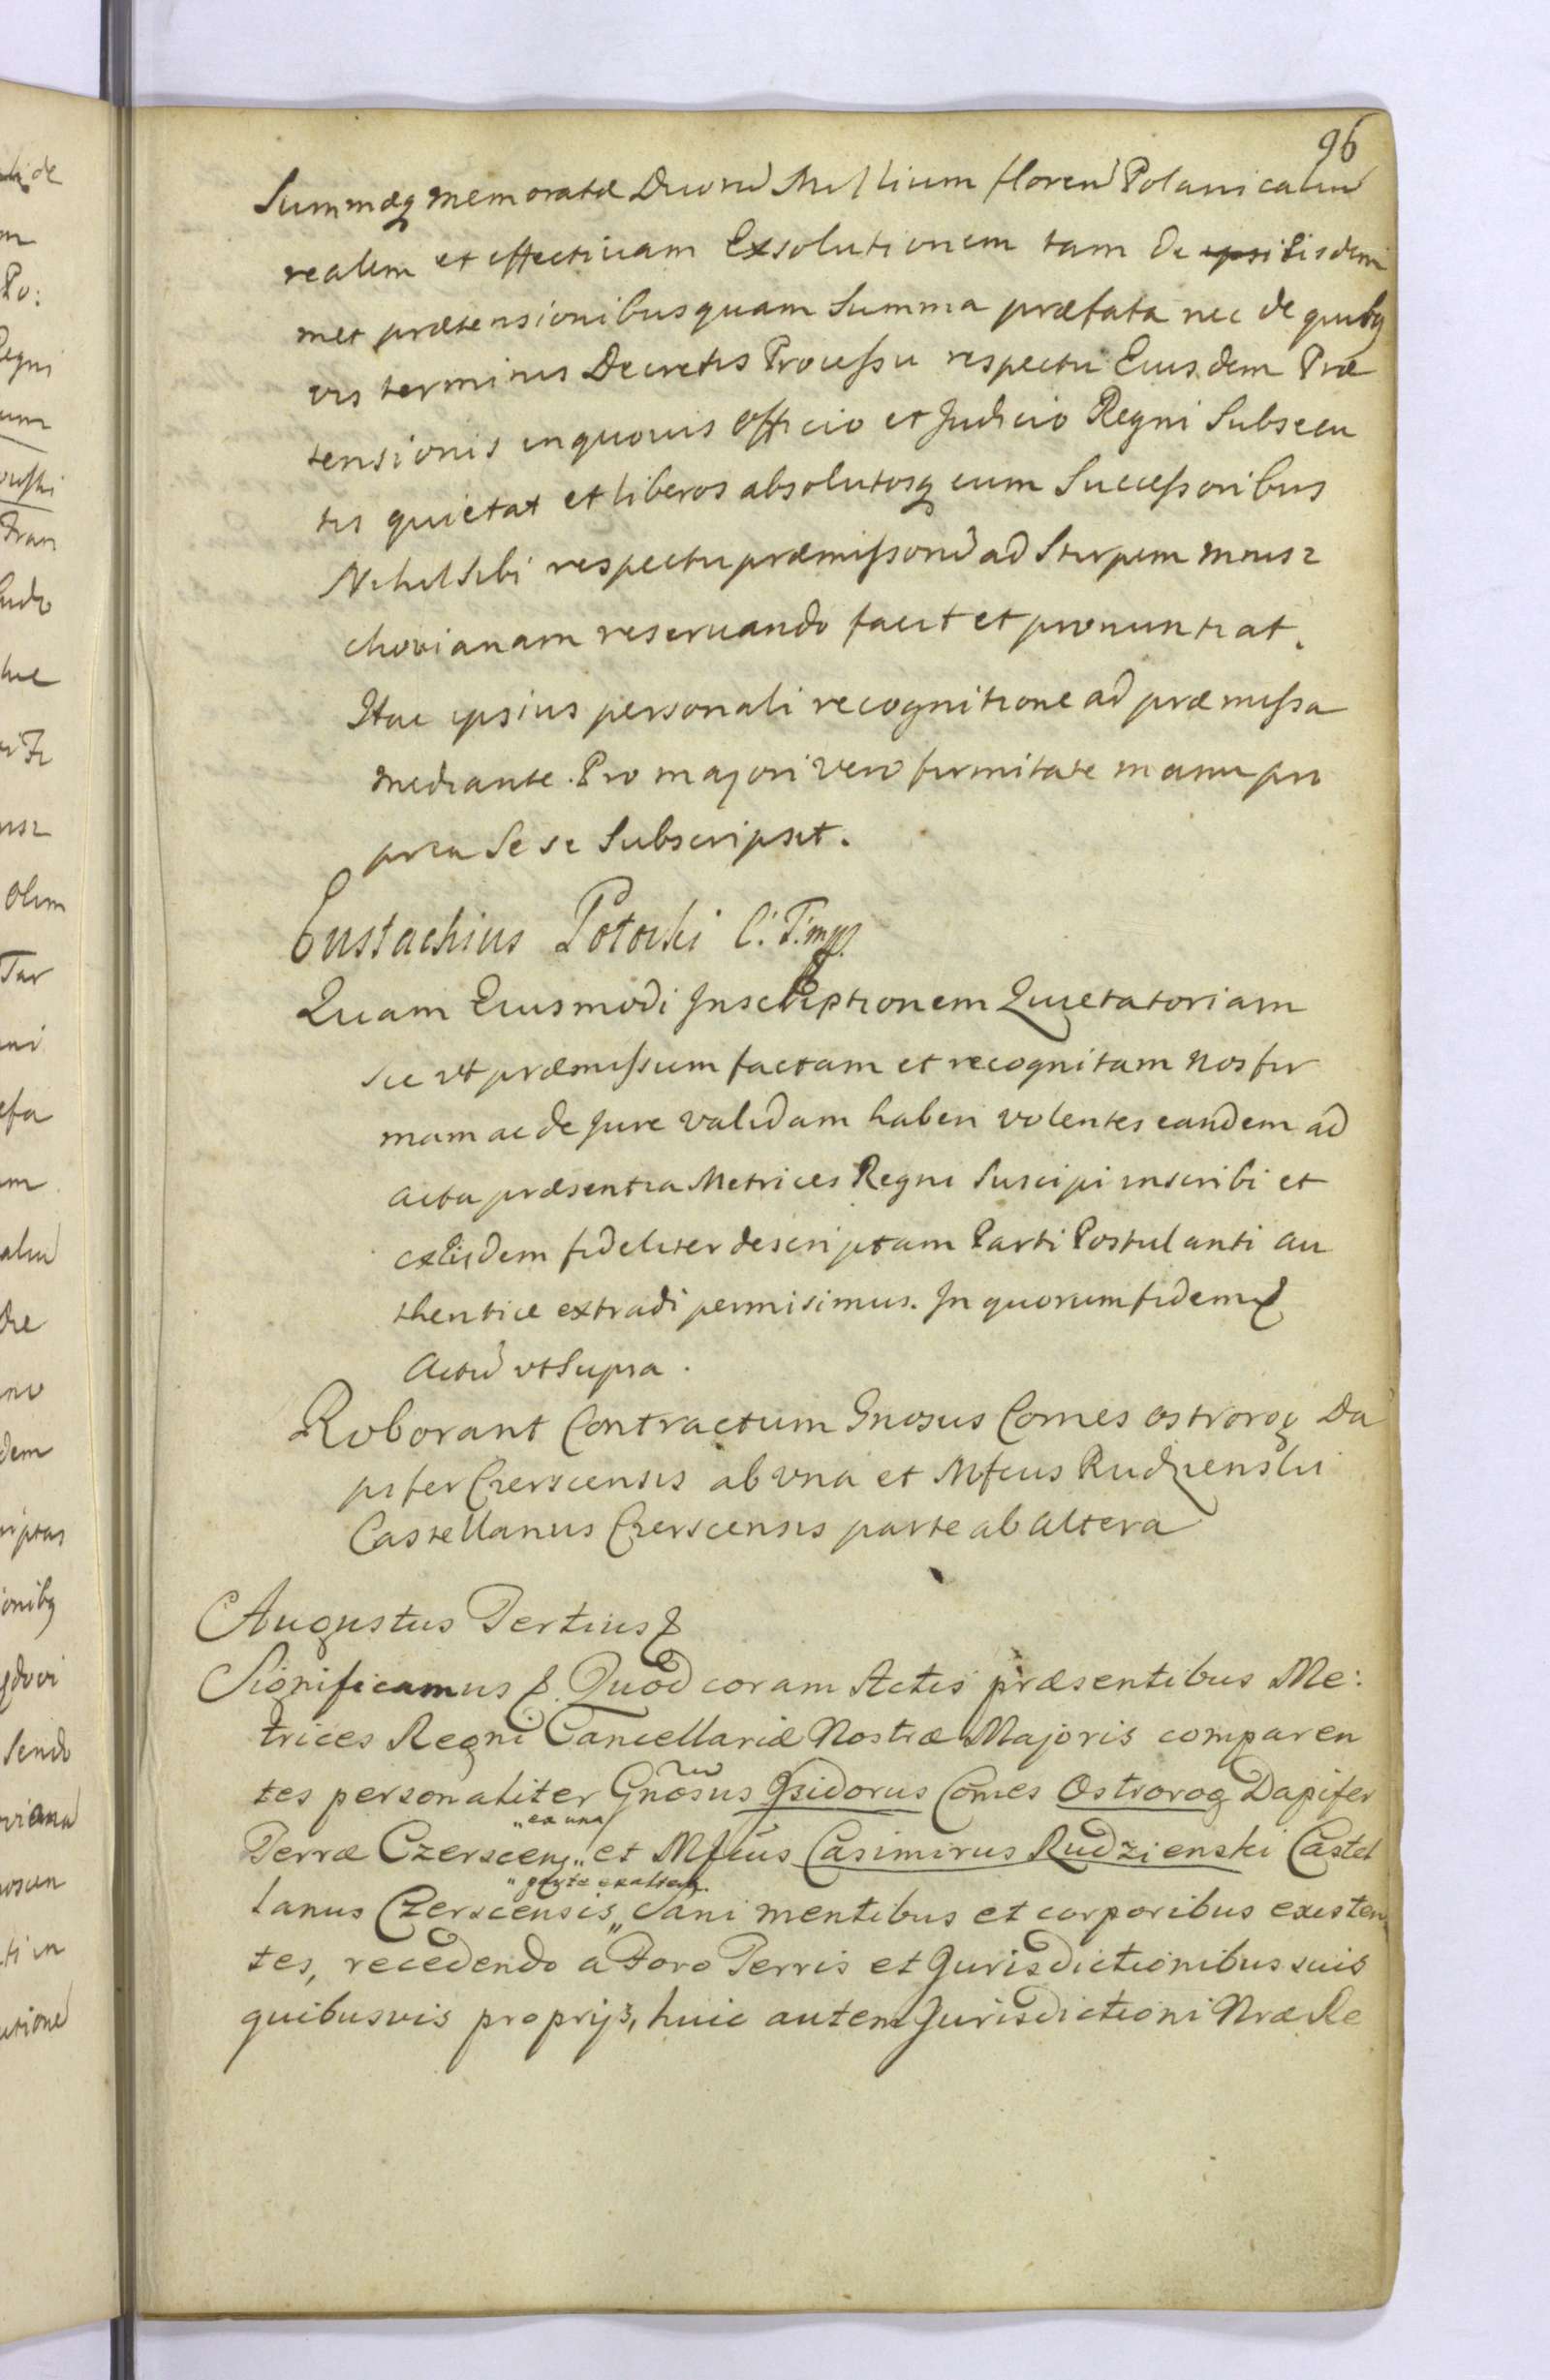 96
Summæq memoratæ Duorū Millium floren̄ Polonicaliū
realem et effectivam Exsolutionem tam de ipsi Eisdem
met prætensionibus quam Summa præfata nec de quibq
vis terminis Decretis Processu respectu Eiusdem Præ
tensionis in quovis Officio et Judicio Regni Subsecu
tis quietat et liberos absolutosq cum Successoribus
Nihil Sibi respectu præmissorū ad Stirpem Mnisz
chovianam reservando facit et pronuntiat.
Hac ipsius personali recognitione ad præmissa
mediante. Pro majori vero firmitate manu pro
pria Se se Subscripsit.
Eustachius Potocki C: T: mpp.
Quam Eiusmodi Inscriptionem Quietatoriam
sic vt præmissum factam et recognitam Nos fir
mam ac de Jure validam haberi volentes eandem ad
acta præsentia Metrices Regni Suscipi inscribi et
ex Eisdem fideliter descriptam Parti Postulanti au
thentice extradi permisimus. In quorum fidem &
Actū vt Supra.
Roborant Contractum Gnosus Comes Ostrorog Da
pifer Czerscensis ab vna et Mfcus Rudzienski
Castellanus Czerscensis parte ab altera
Augustus Tertius &
Significamus &. Quod coram Actis præsentibus Me:
trices Regni Cancellariæ Nostræ Majoris comparen
tes personaliter Gnosus Isidorus Comes Ostrorog Dapifer
"ex una
Terræ Czerscen„ et Mfcus Casimirus Rudzienski Castel
"parte ex altera.
lanus Czerscensis„ Sani mentibus et corporibus existen
tes, recedendo a Foro Terris et Jurisdictionibus suis
quibusvis proprijs, huic autem Jurisdictioni Nræ Re